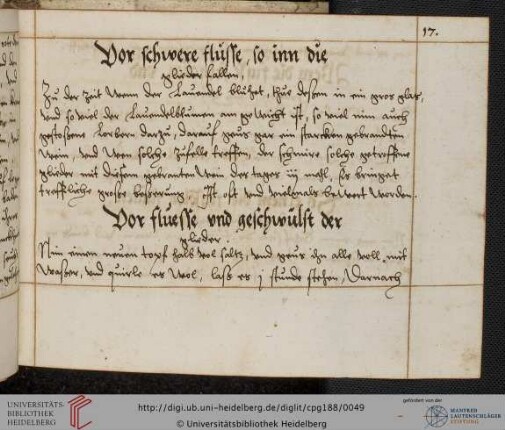 17.
Vor schwere flüsse, so inn die
glieder fallen.
Zu der zeit wenn der Lauendel blühet, thue dessen in ein gros glas,
vnd so viel der Lauendelblumen am gewicht ist, so viel nim auch
gestossene Lorbern darzu, darauf geus gar ein starcken gebrandten
wein, vnd wen solche zufelle treffen, der schmire solche getroffene
glieder mit diesem gebranten wein des tages iij mahl, Es bringet
treffliche grosse besserung Ist offt vnd vielmals bewert worden.
Vor fluesse vnd geschwülst der
glieder.
Nim einen neuen topf halb vol saltz, vnd geus ihn alle voll mit
wasser, vnd quirle es wol, lass es j stunde stehen, Darnach
UNIVERSITÄTS-
BIBLIOTHEK
HEIDELBERG
http://digi.ub.uni-heidelberg.de/diglit/cpg188/0049
© Universitätsbibliothek Heidelberg
gefördert von der
MANFRED
LAUTENSCHLÄGER
STIFTUNG